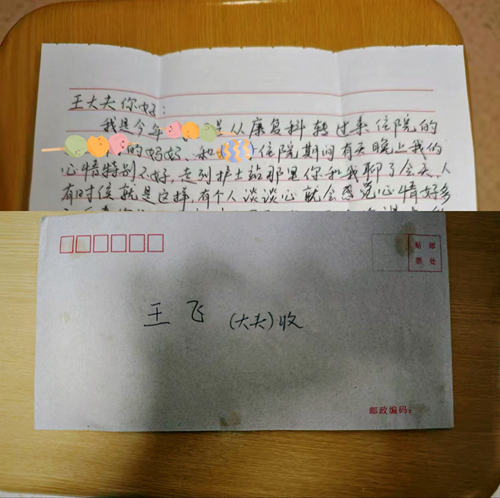 王大夫你好:
我是今年 是从康复科转过来住院的
的妈妈、和 住院期间有天晚上我的
心情特别不好,走到护士站那里你和我聊了会天、人
有时候就是这样,有个人谈谈心就会感觉心情好多
贴 邮
票 处
王飞 (大夫)收
邮政编码: